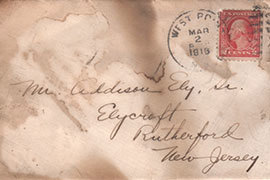 WEST PO
MAR
2
1918
U.S. POSTAGE
2 CENTS 2
Mr. Addison Ely, Sr.
Elycroft
Rutherford
New Jersey